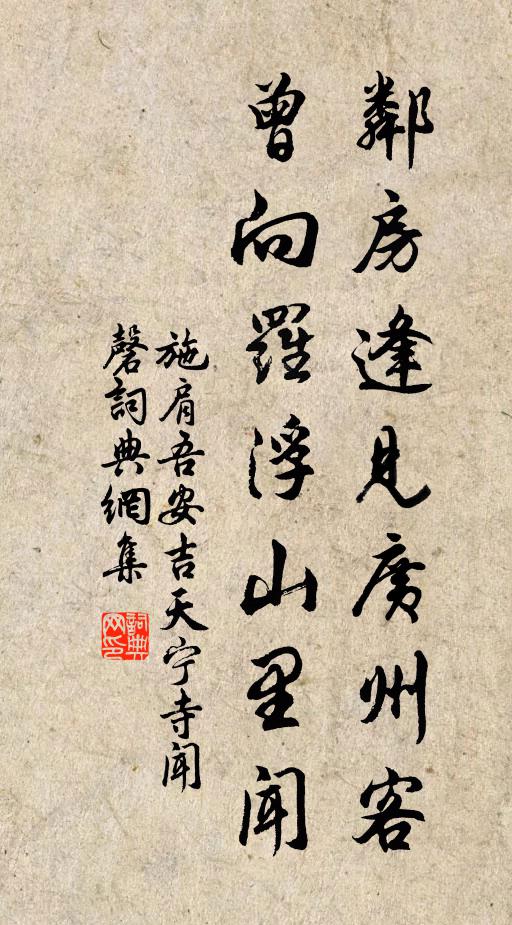 鄰房逢見广州客
曾向羅浮山里聞
施肩吾安吉天宁寺聞
磬詞典網集
詞典网印